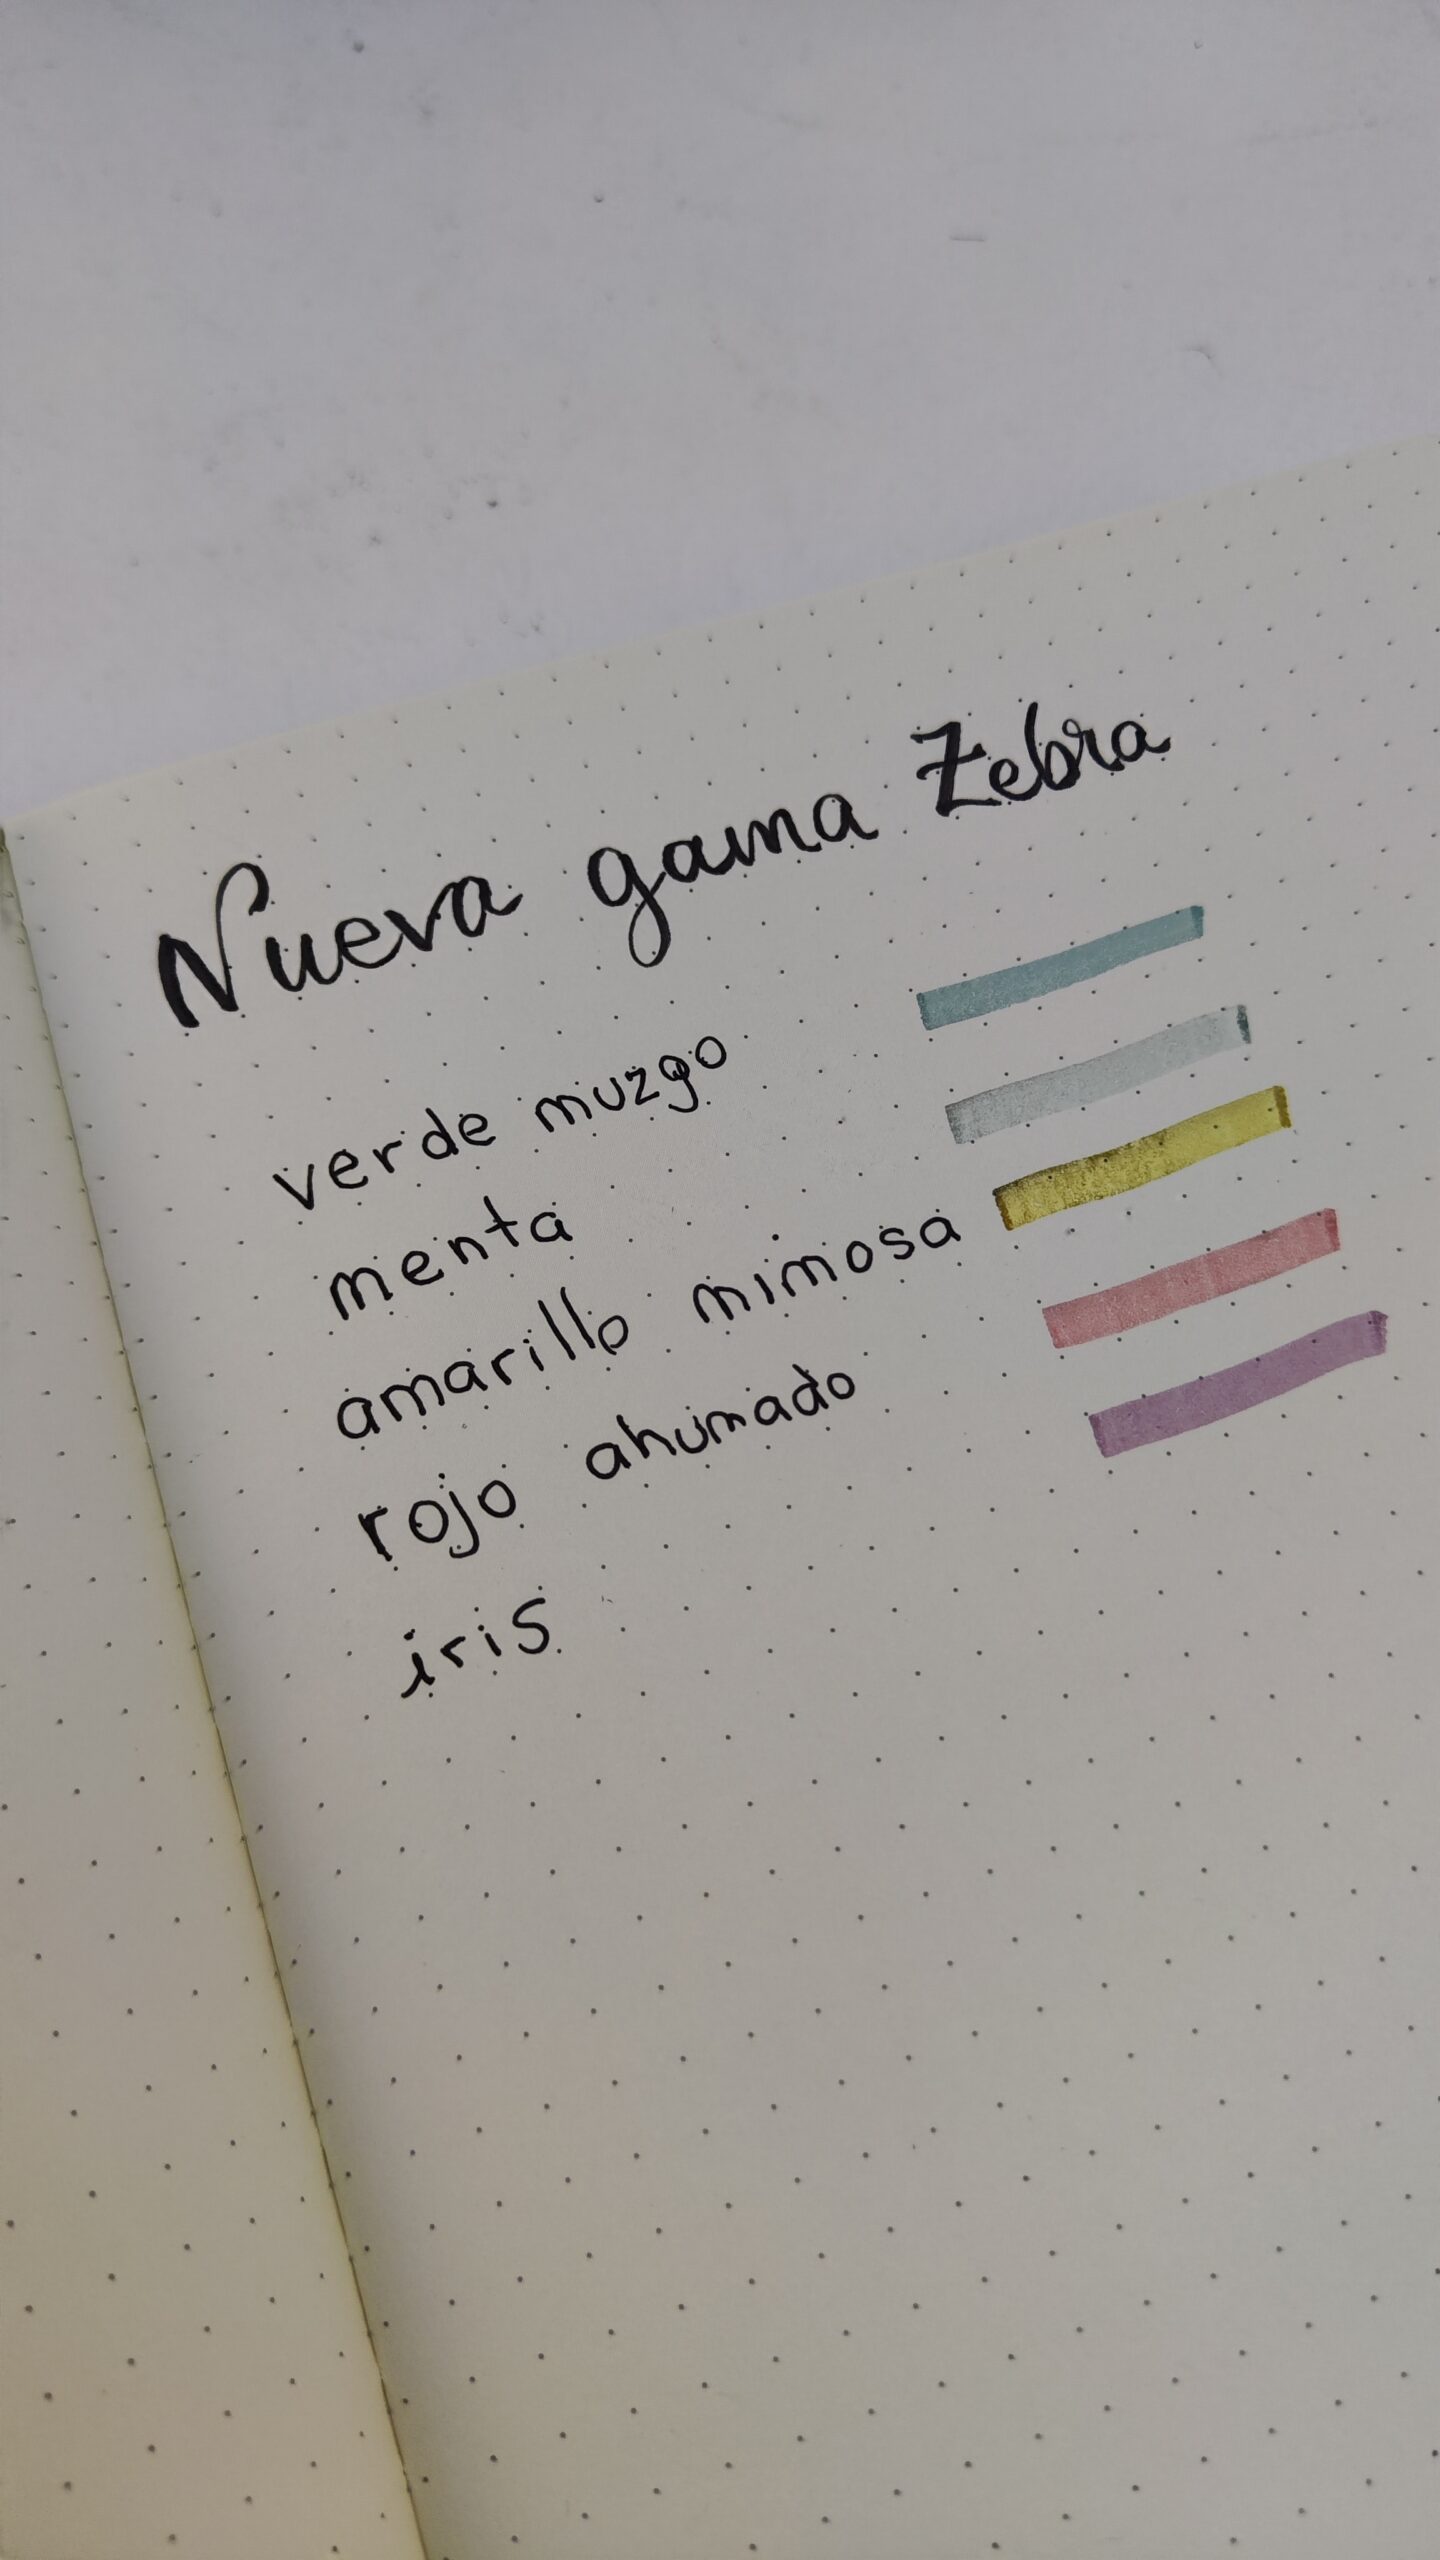 Nueva gama Zebra
verde muzgo
menta
amarillo mimosa
rojo ahumado
iris